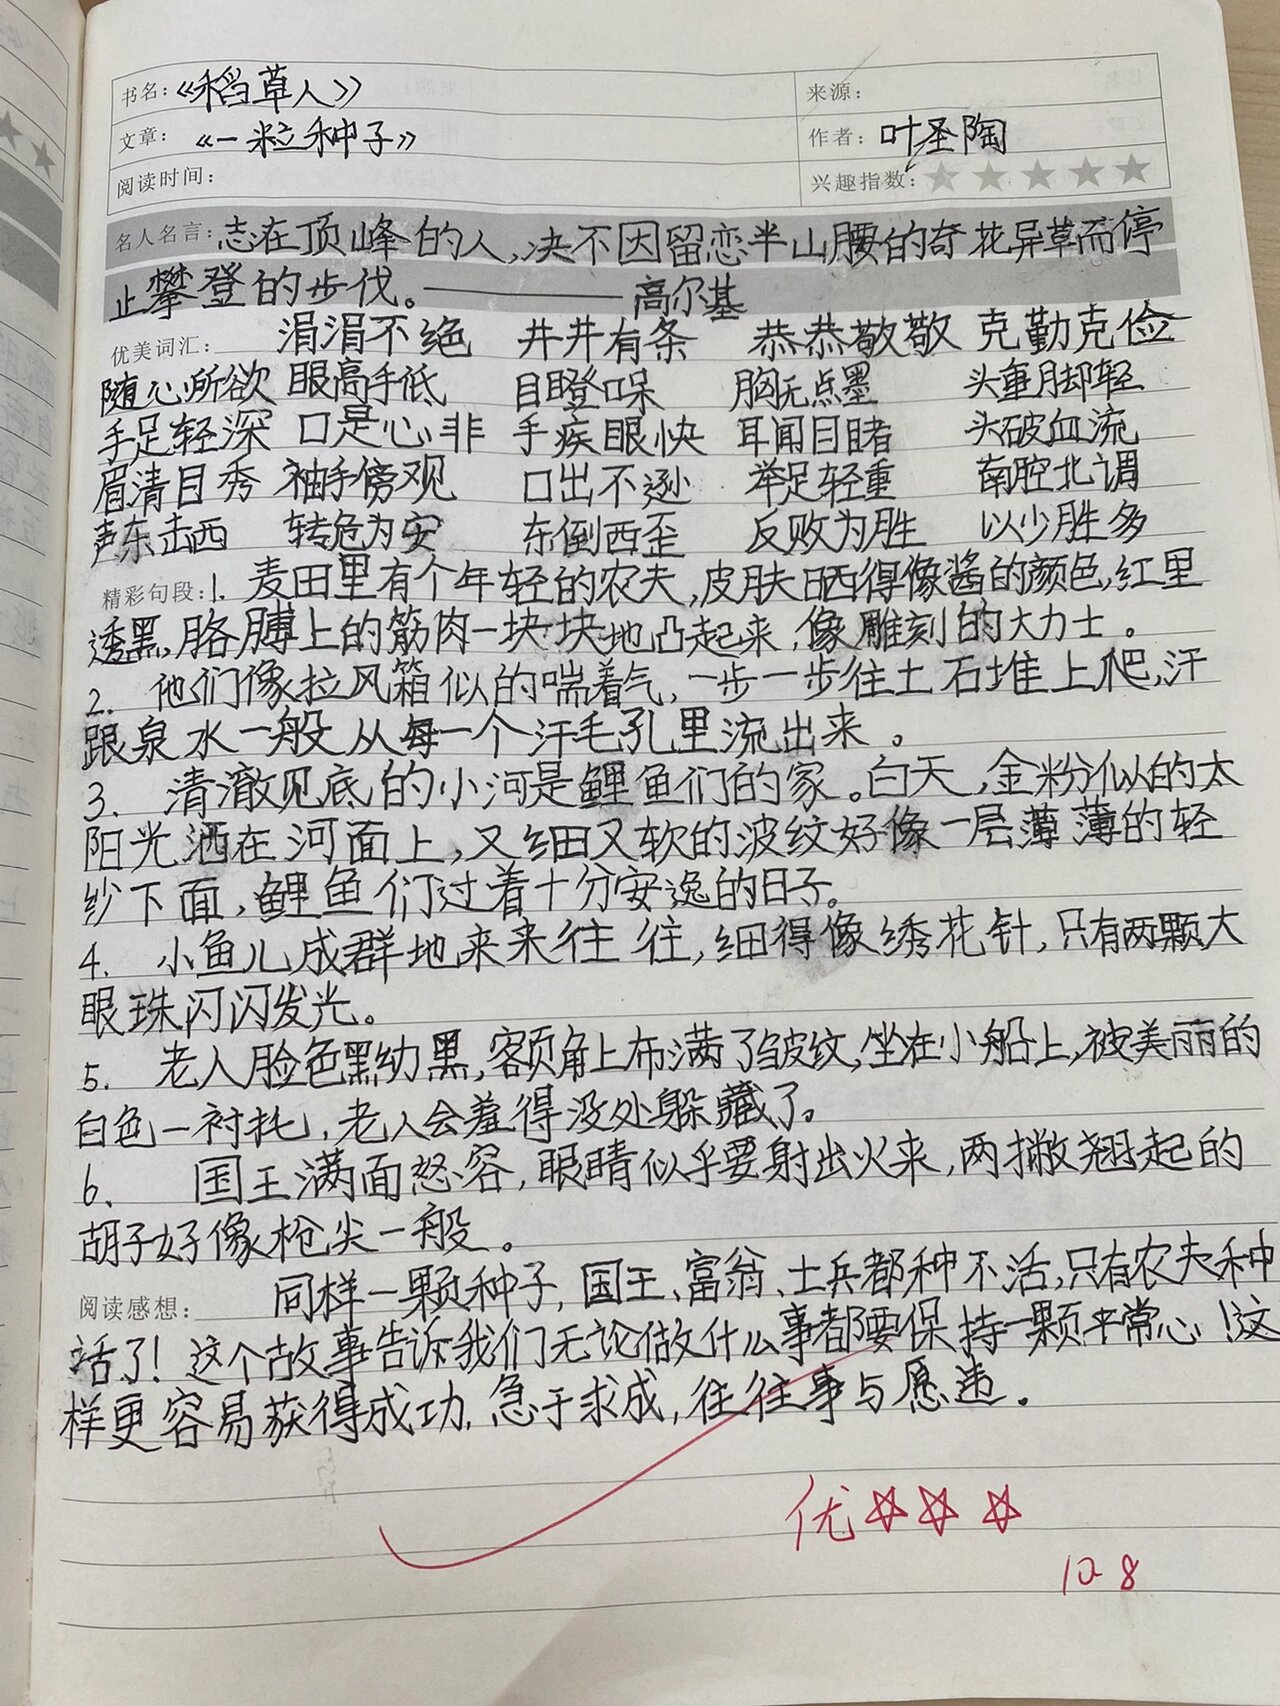 书名：《稻草人》 来源：
文章：《一粒种子》 作者：叶圣陶
阅读时间： 兴趣指数：
名人名言：志在顶峰的人，决不因留恋半山腰的奇花异草而停
止攀登的步伐。——高尔基
优美词汇： 涓涓不绝 井井有条 恭恭敬敬 克勤克俭
随心所欲 眼高手低 目瞪口呆 胸无点墨 头重脚轻
手足轻深 口是心非 手疾眼快 耳闻目睹 头破血流
眉清目秀 袖手傍观 口出不逊 举足轻重 南腔北调
声东击西 转危为安 东倒西歪 反败为胜 以少胜多
精彩句段：1. 麦田里有个年轻的农夫，皮肤晒得像酱的颜色，红里
透黑，胳膊上的筋肉一块块地凸起来，像雕刻的大力士。
2. 他们像拉风箱似的喘着气，一步一步往土石堆上爬，汗
跟泉水一般从每一个汗毛孔里流出来。
3. 清澈见底的小河是鲤鱼们的家。白天，金粉似的太
阳光洒在河面上，又细又软的波纹好像一层薄薄的轻
纱下面，鲤鱼们过着十分安逸的日子。
4. 小鱼儿成群地来来往往，细得像绣花针，只有两颗大
眼珠闪闪发光。
5. 老人脸色黑幼黑，额角上布满了皱纹，坐在小船上，被美丽的
白色一衬托，老人会羞得没处躲藏了。
6. 国王满面怒容，眼睛似乎要射出火来，两撇翘起的
胡子好像枪尖一般。
阅读感想： 同样一颗种子，国王、富翁、士兵都种不活，只有农夫种
活了！这个故事告诉我们无论做什么事都要保持一颗平常心！这
样更容易获得成功，急于求成，往往事与愿违。
优☆☆☆
10.8